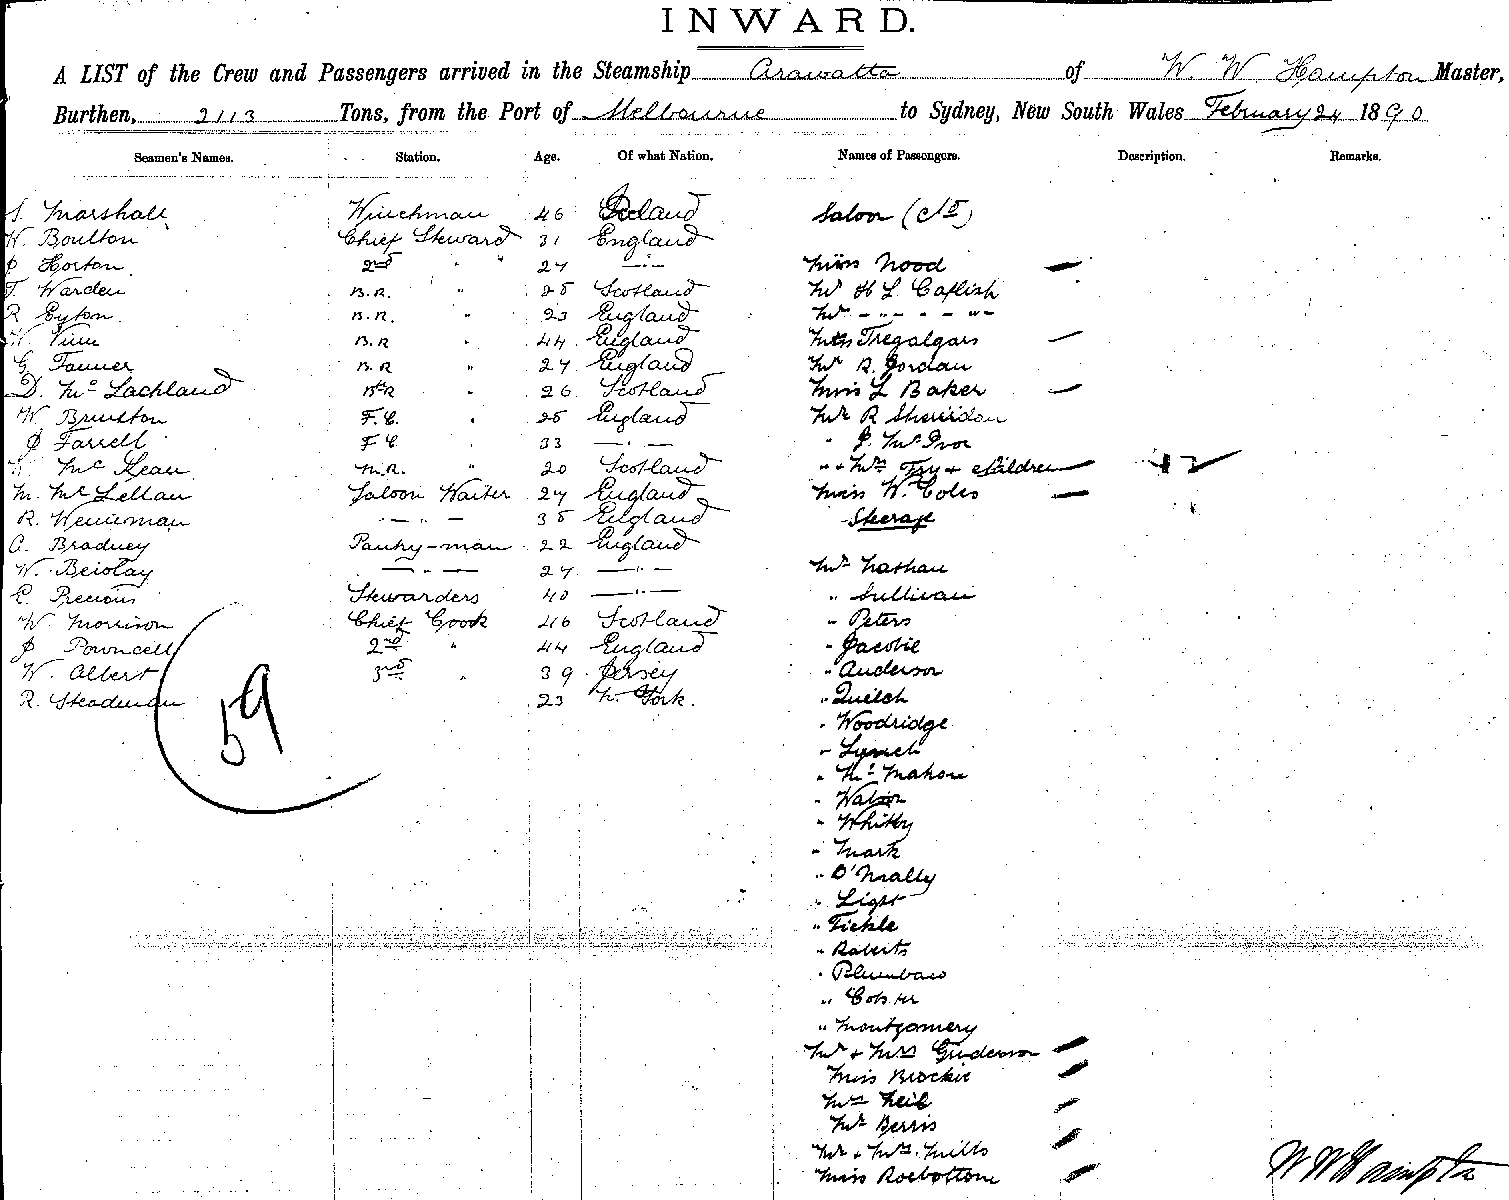 INWARD.
A LIST of the Crew and Passengers arrived in the Steamship Arawatta of W. W Hampton Master,
Burthen, 2113 Tons, from the Port of Melbourne to Sydney, New South Wales February 24 1890
Seamen's Names. Station. Age. Of what Nation. Names of Passengers. Description. Remarks.
S. Marshall Winchman 46 Ireland Saloon
W. Boulton Chief Steward 31 England
J Horton 2nd " " 27 — " — Miss Wood
T. Warden B.R. " 25 Scotland Mr H L Caflish
R Eyton B.R. " 23 England Mr - " - - - " -
W B.R " 44 England Tregalgas
G B.R " 27 England Mr R. Jordan
D. Mc Lachland " 26 Scotland Miss L Baker
W. Brunton F.C. " 25 England Mr R Sheridan
J Farrell F C " 33 — " — " J. McIvor
Mc Lean M.R. " 20 Scotland " + Mrs Fry + children
M. Mc Lellan Saloon Waiter 27 England Miss W. Coles
R. — " — 35 England Steerage
C. Bradney Pantry-man 22 England
W. — " — 27 — " — Mr Nathan
E. Precious Stewardess 40 — " — " Sullivan
W. Morrison Chief Cook 46 Scotland " Peters
J Powncell 2nd " 44 England " Jacobie
W. Albert 3rd " 39 Jersey " Anderson
R. Steadman 23 N. York. " Quelch
59
" Woodridge
" Lynch
" McMahon
" Watson
" Whitby
" Mark
" O'Mally
" Light
" Tickle
" Roberts
"
"
" Montgomery
Mr + Mrs Gunderson
Miss Brockie
Neil
Mr Berris
Mr + Mrs. Mills
Miss Roebottom
W W Hampton